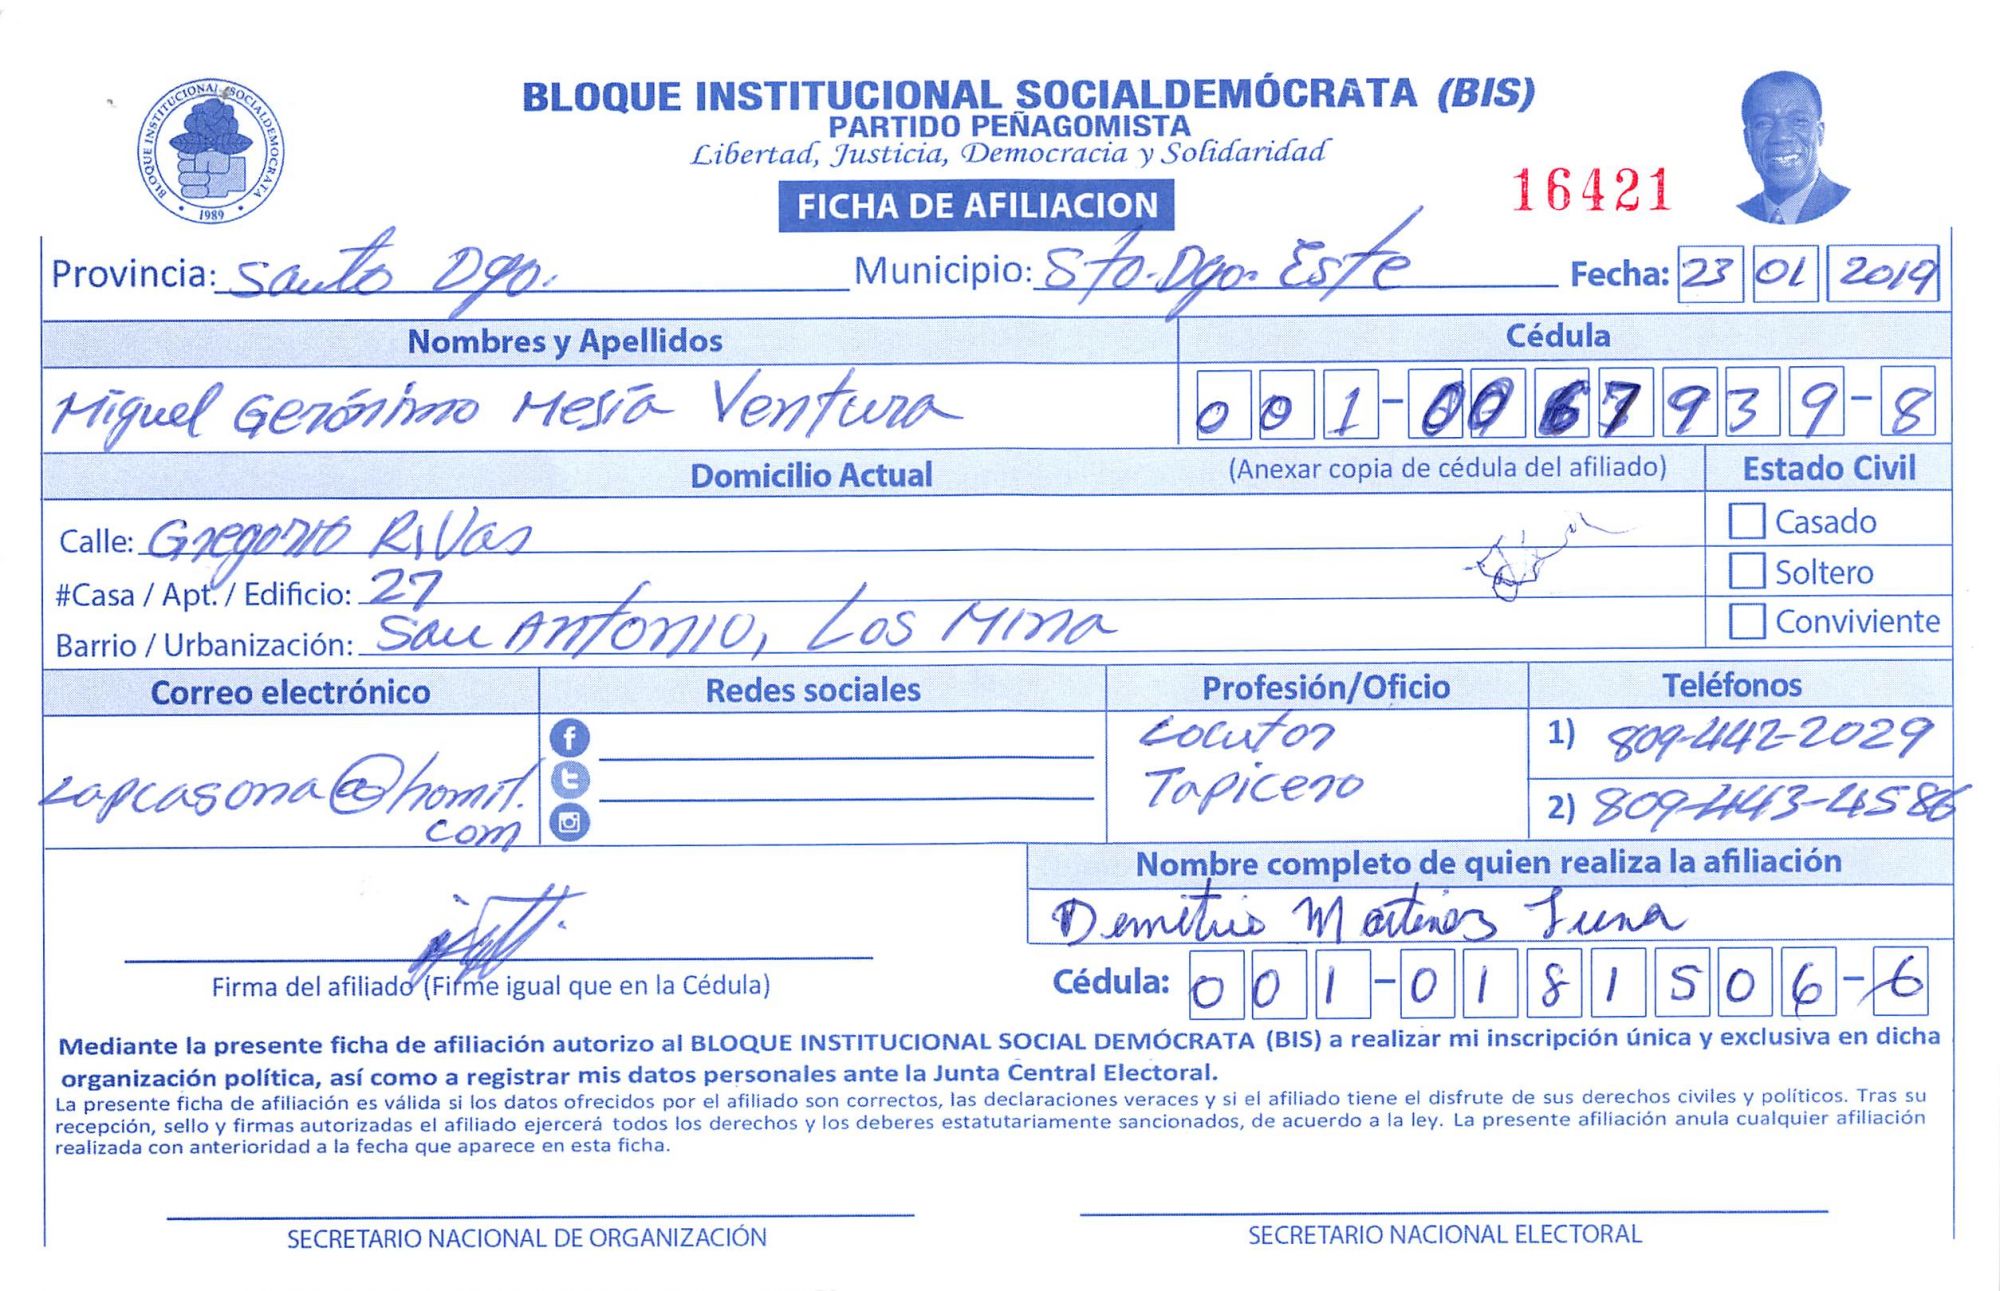 BLOQUE INSTITUCIONAL SOCIALDEMÓCRATA (BIS)
PARTIDO PEÑAGOMISTA
Libertad, Justicia, Democracia y Solidaridad
BLOQUE INSTITUCIONAL SOCIALDEMOCRATA
1989
FICHA DE AFILIACION
16421
Provincia: Santo Dgo. Municipio: Sto. Dgo. Este Fecha: 23 01 2019
Nombres y Apellidos Cédula
Miguel Gerónimo Mesía Ventura 001-0067939-8
Domicilio Actual (Anexar copia de cédula del afiliado) Estado Civil
Calle: Gregorio Rivas Casado
#Casa / Apt. / Edificio: 27 Soltero
Barrio / Urbanización: San Antonio, Los Mina Conviviente
Correo electrónico Redes sociales Profesión/Oficio Teléfonos
Locutor 1) 809-442-2029
Lapcasona@homil. Tapicero 2) 809-443-4586
com
Nombre completo de quien realiza la afiliación
Demetrio Martinez Luna
Firma del afiliado (Firme igual que en la Cédula) Cédula: 001-0181506-6
Mediante la presente ficha de afiliación autorizo al BLOQUE INSTITUCIONAL SOCIAL DEMÓCRATA (BIS) a realizar mi inscripción única y exclusiva en dicha
organización política, así como a registrar mis datos personales ante la Junta Central Electoral.
La presente ficha de afiliación es válida si los datos ofrecidos por el afiliado son correctos, las declaraciones veraces y si el afiliado tiene el disfrute de sus derechos civiles y políticos. Tras su
recepción, sello y firmas autorizadas el afiliado ejercerá todos los derechos y los deberes estatutariamente sancionados, de acuerdo a la ley. La presente afiliación anula cualquier afiliación
realizada con anterioridad a la fecha que aparece en esta ficha.
SECRETARIO NACIONAL DE ORGANIZACIÓN SECRETARIO NACIONAL ELECTORAL